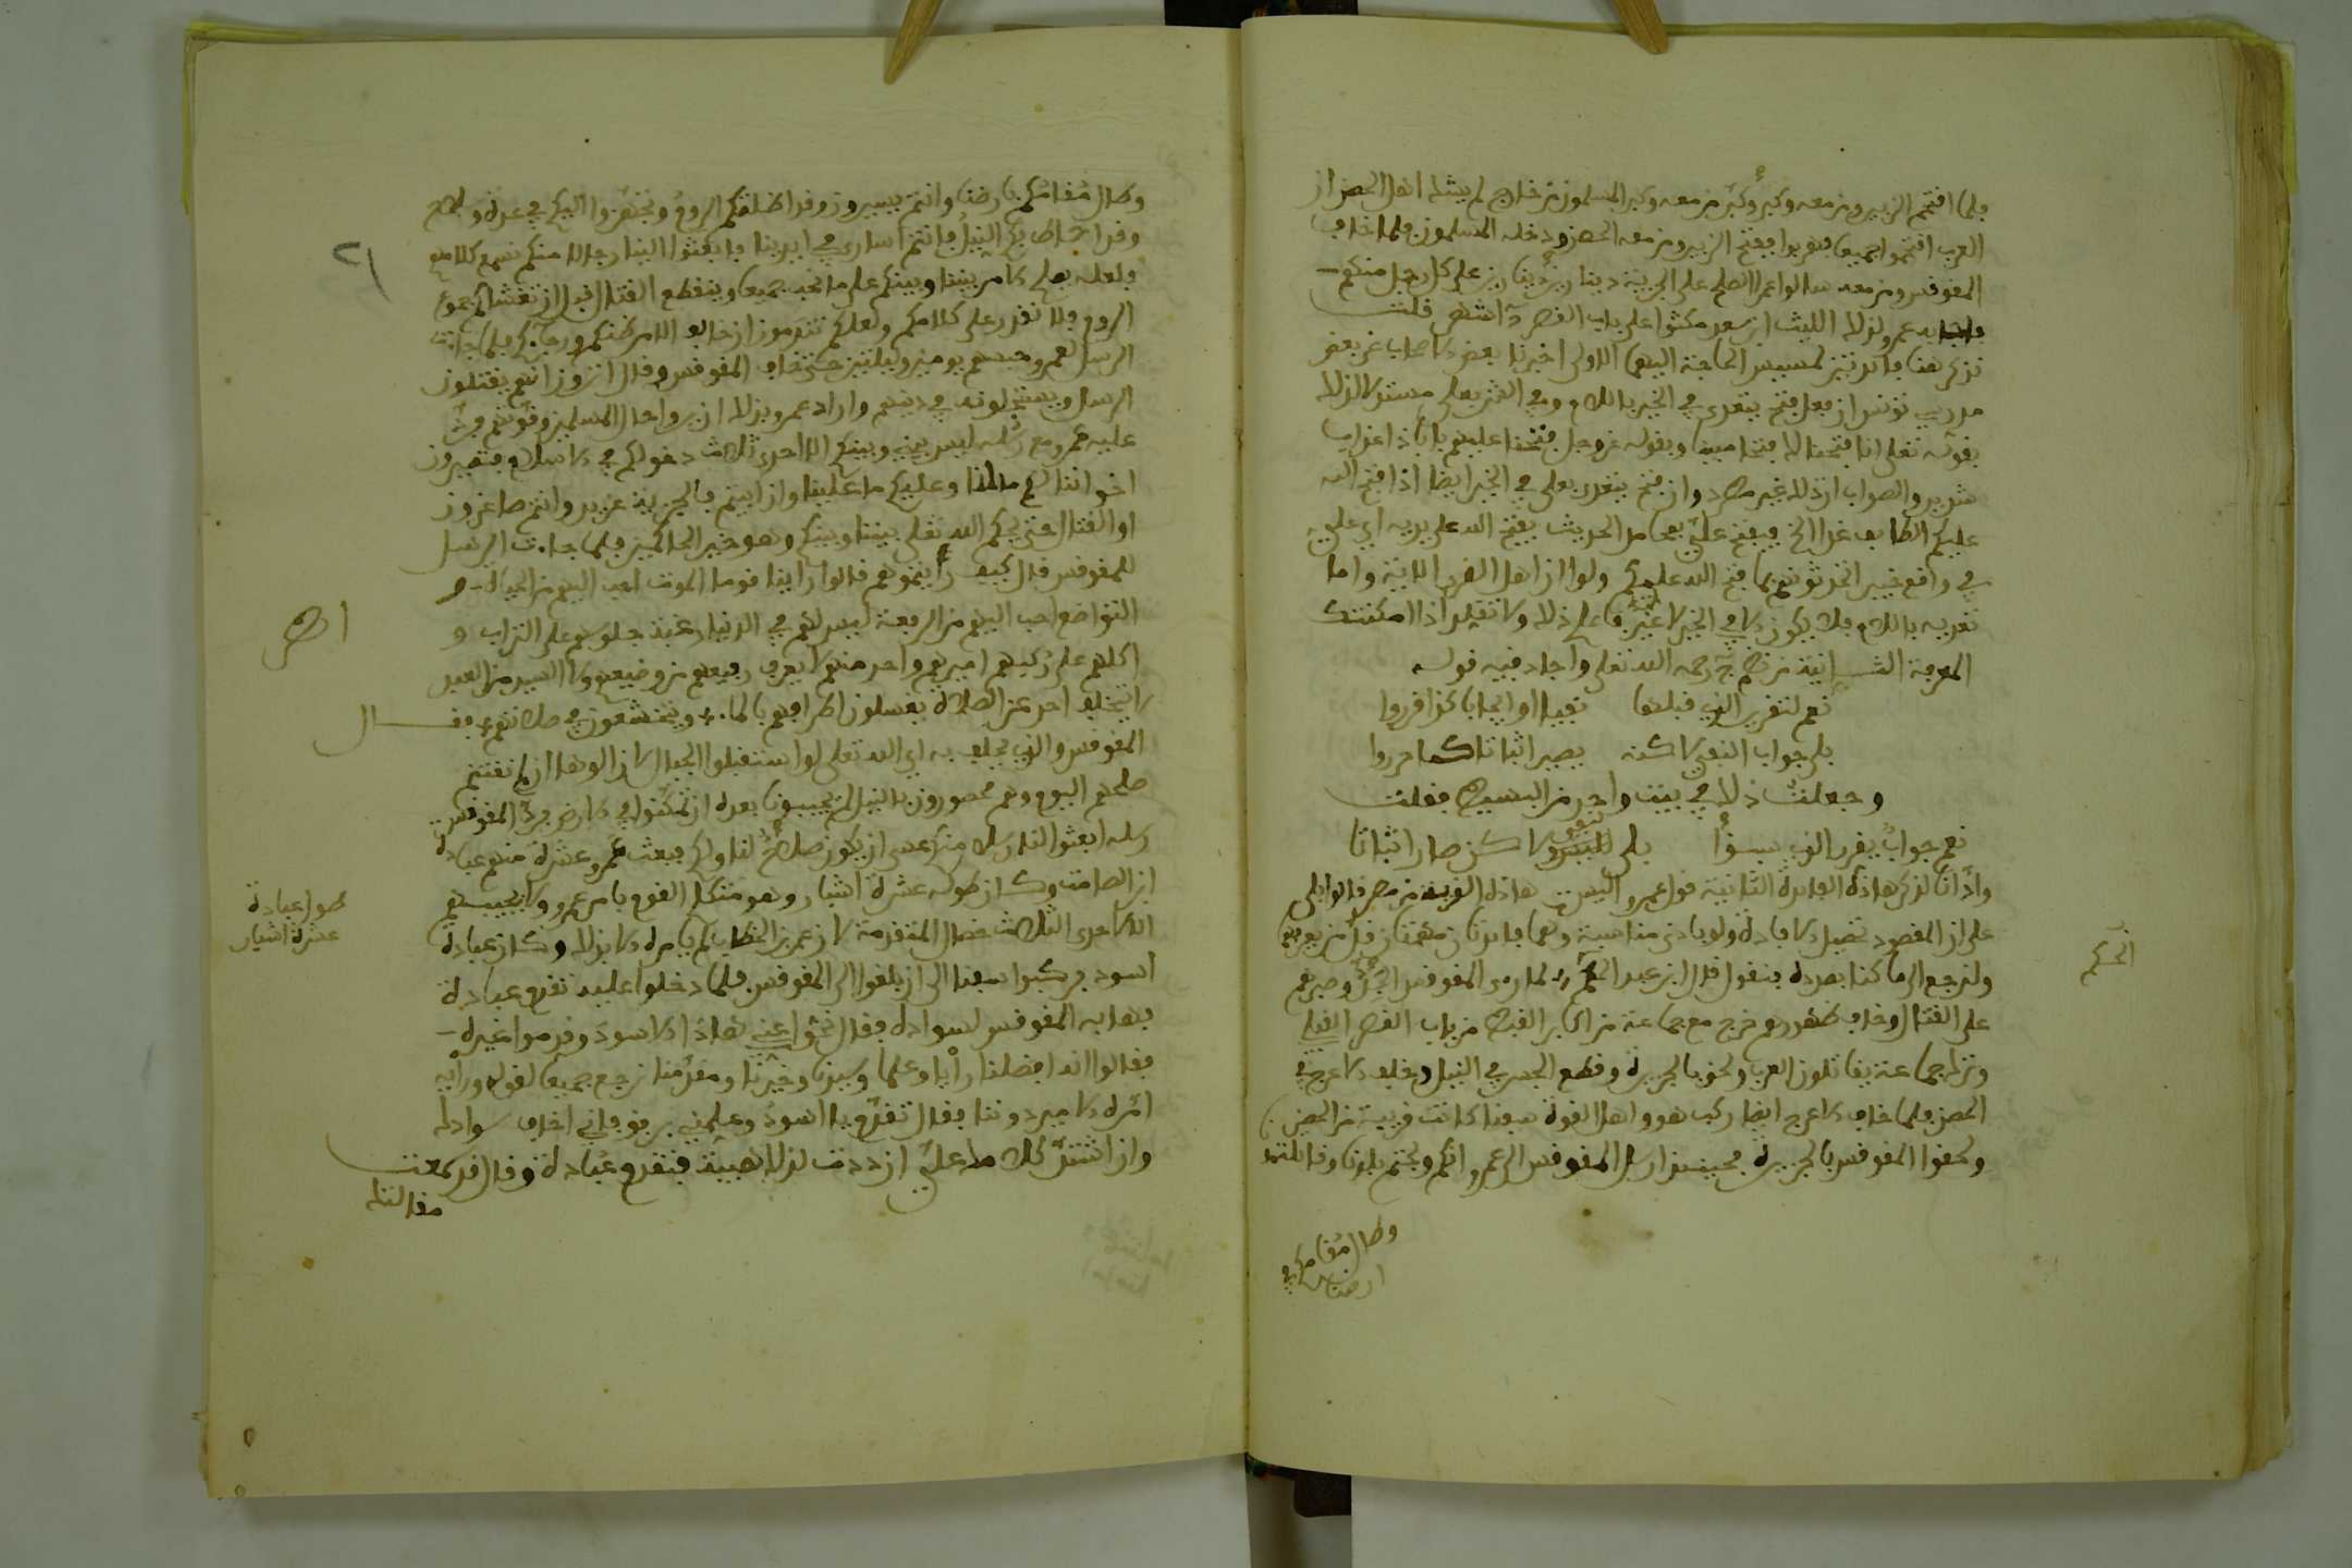 فلما افتحم الزبير ومن معه وكبر وكبر من معه وكبر المسلمون من خارج لم يشك اهل الحصن ان
العرب افتحموا جميعا فهربوا ففتح الزبير ومن معه الحصن ودخله المسلمون فلما خاف
المقوقس ومن معه سالوا عمرا الصلح على الجزية دينارين دينارين على كل رجل منكم
فاجابه عمرو لذلك الليث ابن سعد مكثوا على باب القصر اشهر قلت
نذكر هنا فائدتين لمسيس الحاجة اليهما الاولى اخبرنا بعض الاصحاب عن بعض
مدرسي تونس ان فعل فتح يتعدى في الخير باللام وفي الشر بعلى مستدلا لذلك
بقوله تعلى انا فتحنا لك فتحا مبينا وبقوله عز وجل فتحنا عليهم بابا ذا عذاب
شديد والصواب ان ذلك غير مطرد وان فتح يتعدى بعلى في الخير ايضا اذا فتح الله
عليكم الطايف غدا الخ فيفتح علي بمحامد الحديث يفتح الله على يديه اي علي
في واقع خيبر اتحدثونهم بما فتح الله عليكم ولو ان اهل القرى الاية واما
تعديه باللام فلا يكون الا في الخير لا غير فاعلم ذلك ولا تقلد اذا امكنتك
المعرفة الثانية رحمه الله تعلى واجاد فيه قوله
نعم لتقرير الذي قبلها نفيا او ايجابا كذا قرروا
بلى جواب النفي لاكنه يصير اثباتا كما حرروا
وجعلت ذلك في بيت واحد من البسيط فقلت
نعم جواب يقرر الذي سبقا بلى لنفي ولاكن صار اثباتا
وادانا لذكر هاذه الفائدة الثانية قول عمرو اليست هاذه القرية من مصر قالوا بلى
على ان المقصود تحصيل الافادة ولو بادنى مناسبة وهما فائدتان مهمتان قل من يعرفهما
ولنرجع الى ما كنا بصدده فنقول قال ابن عبد الحكم لما رءا المقوقس الجد وصبرهم
على القتال وخاف ظهورهم خرج مع جماعة من اكابر القبط من باب القصر القبلي
وترك جماعة يقاتلون العرب ولحق بالجزيرة وقطع الجسر في النيل وتخلف الاعرج في
الحصن فلما خاف الاعرج ايضا ركب هو واهل القوة سفنا كانت قريبة من الحصن
ولحقوا المقوقس بالجزيرة فحينئذ ارسل المقوقس الى عمرو انكم ولجتم بلادنا وقاتلتم
وطال مقامكم في
ارضنا
الحكم
وطال مقامكم بارضنا وانتم يسيرون وقد اظلتكم الروم وتجهزوا اليكم في عدة وسلاح
وقد احاط بكم النيل فانتم اسارى في ايدينا فابعثوا الينا رجالا منكم نسمع كلامهم
ولعله يصلح الامر بيننا وبينكم على ما نحب جميعا وينقطع القتال قبل ان تغشاكم جموع
الروم فلا نقدر على كلامكم ولعلكم تندمون ان خالف الامر ظنكم ورجاءكم فلما جاءت
الرسل لعمرو حبسهم يومين وليلتين حتى خاف المقوقس وقال اترون انهم يقتلون
الرسل ويستحلونه في دينهم واراد عمرو بذلك ان يروا حال المسلمين وقوتهم فرد
عليه عمرو مع رسله ليس بيني وبينكم الا احدى ثلاث دخولكم في الاسلام فتصيرون
اخواننا لكم ما لنا وعليكم ما علينا وان ابيتم فالجزية عن يد وانتم صاغرون
او القتال حتى يحكم الله تعلى بيننا وبينكم وهو خير الحاكمين فلما جاءت الرسل
للمقوقس قال كيف رأيتموهم قالوا راينا قوما الموت احب اليهم من الحياة و
التواضع احب اليهم من الرفعة ليس لهم في الدنيا رغبة جلوسهم على التراب و
اكلهم على ركبهم اميرهم واحد منهم لا يعرف رفيعهم من وضيعهم ولا السيد من العبد
لا يتخلف احد عن الصلاة يغسلون اطرافهم بالماء ويخشعون في صلاتهم فقــال
المقوقس والذي يحلف به اي الله تعلى لو استقبلوا الجبال لازالوها ان لم نغتنم
صلحهم اليوم وهم محصورون بالنيل لم يجيبونا بعده ان تمكنوا في الارض فرد المقوقس
رسله ابعثوا لنا رسلا منكم عسى ان يكون صلاح لنا ولكم فبعث عمرو عشرة منهم عبادة
ابن الصامت وكان طوله عشرة اشبار وهو متكلم القوم بامر عمرو ولا يجيبهم
الا لاحدى الثلاث خصال المتقدمة لان عمر بن الخطاب لم يامره الا بذلك وكان عبادة
اسود فركبوا سفنا الى ان بلغوا الى المقوقس فلما دخلوا عليه تقدم عبادة
فهابه المقوقس لسواده فقال نحوا عني هاذا الاسود وقدموا غيره
فقالوا انه افضلنا رأيا وعلما وسيدنا وخيرنا ومقدمنا نرجع جميعا لقوله ورأيه
امره الامير دوننا فقال تقدم يا اسود وكلمني برفق فاني اخاف سوادك
وان اشتد كلامك علي ازددت لذلك هيبة فتقدم عبادة وقال قد سمعت
مقالتك
طول عبادة
عشرة اشبار